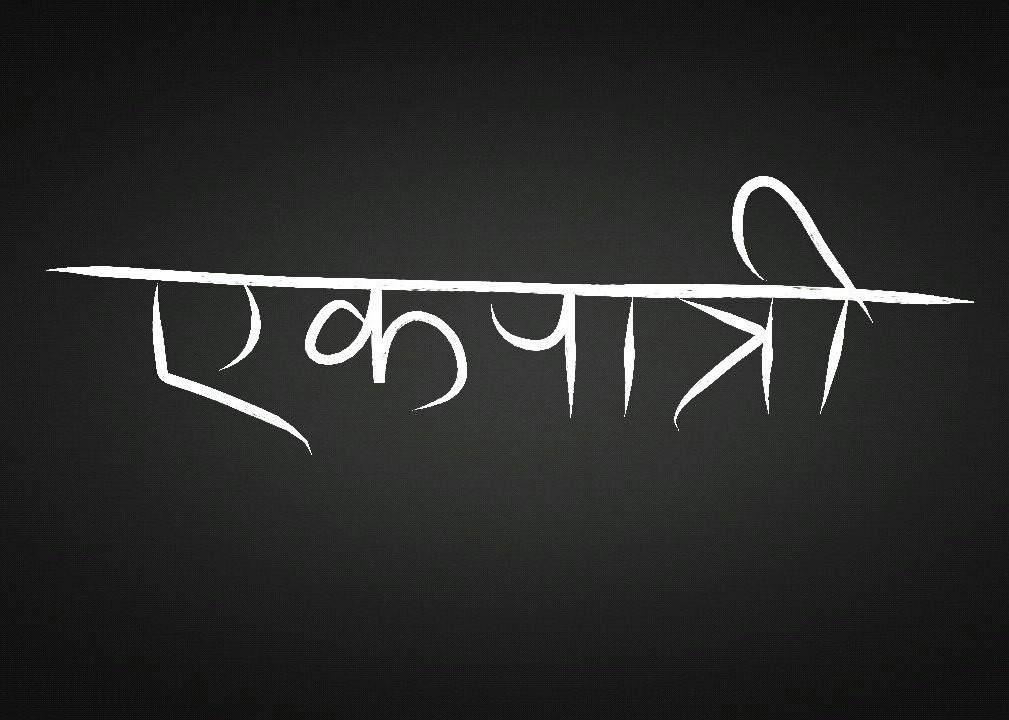 एकपात्री